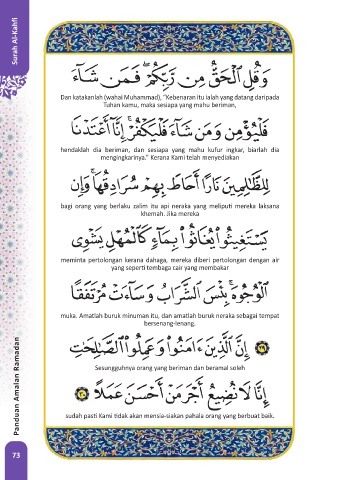 Surah Al-Kahfi
وَقُلِ ٱلْحَقُّ مِن رَّبِّكُمْ ۖ فَمَن شَآءَ
Dan katakanlah (wahai Muhammad), "Kebenaran itu ialah yang datang daripada
Tuhan kamu, maka sesiapa yang mahu beriman,
فَلْيُؤْمِن وَمَن شَآءَ فَلْيَكْفُرْ ۚ إِنَّآ أَعْتَدْنَا
hendaklah dia beriman, dan sesiapa yang mahu kufur ingkar, biarlah dia
mengingkarinya." Kerana Kami telah menyediakan
لِلظَّـٰلِمِينَ نَارًا أَحَاطَ بِهِمْ سُرَادِقُهَا ۚ وَإِن
bagi orang yang berlaku zalim itu api neraka yang meliputi mereka laksana
khemah. Jika mereka
يَسْتَغِيثُوا۟ يُغَاثُوا۟ بِمَآءٍ كَٱلْمُهْلِ يَشْوِى
meminta pertolongan kerana dahaga, mereka diberi pertolongan dengan air
yang seperti tembaga cair yang membakar
ٱلْوُجُوهَ ۚ بِئْسَ ٱلشَّرَابُ وَسَآءَتْ مُرْتَفَقًا
muka. Amatlah buruk minuman itu, dan amatlah buruk neraka sebagai tempat
bersenang-lenang.
٢٩ إِنَّ ٱلَّذِينَ ءَامَنُوا۟ وَعَمِلُوا۟ ٱلصَّـٰلِحَـٰتِ
Sesungguhnya orang yang beriman dan beramal soleh
إِنَّا لَا نُضِيعُ أَجْرَ مَنْ أَحْسَنَ عَمَلًا ٣٠
sudah pasti Kami tidak akan mensia-siakan pahala orang yang berbuat baik.
Panduan Amalan Ramadan
73